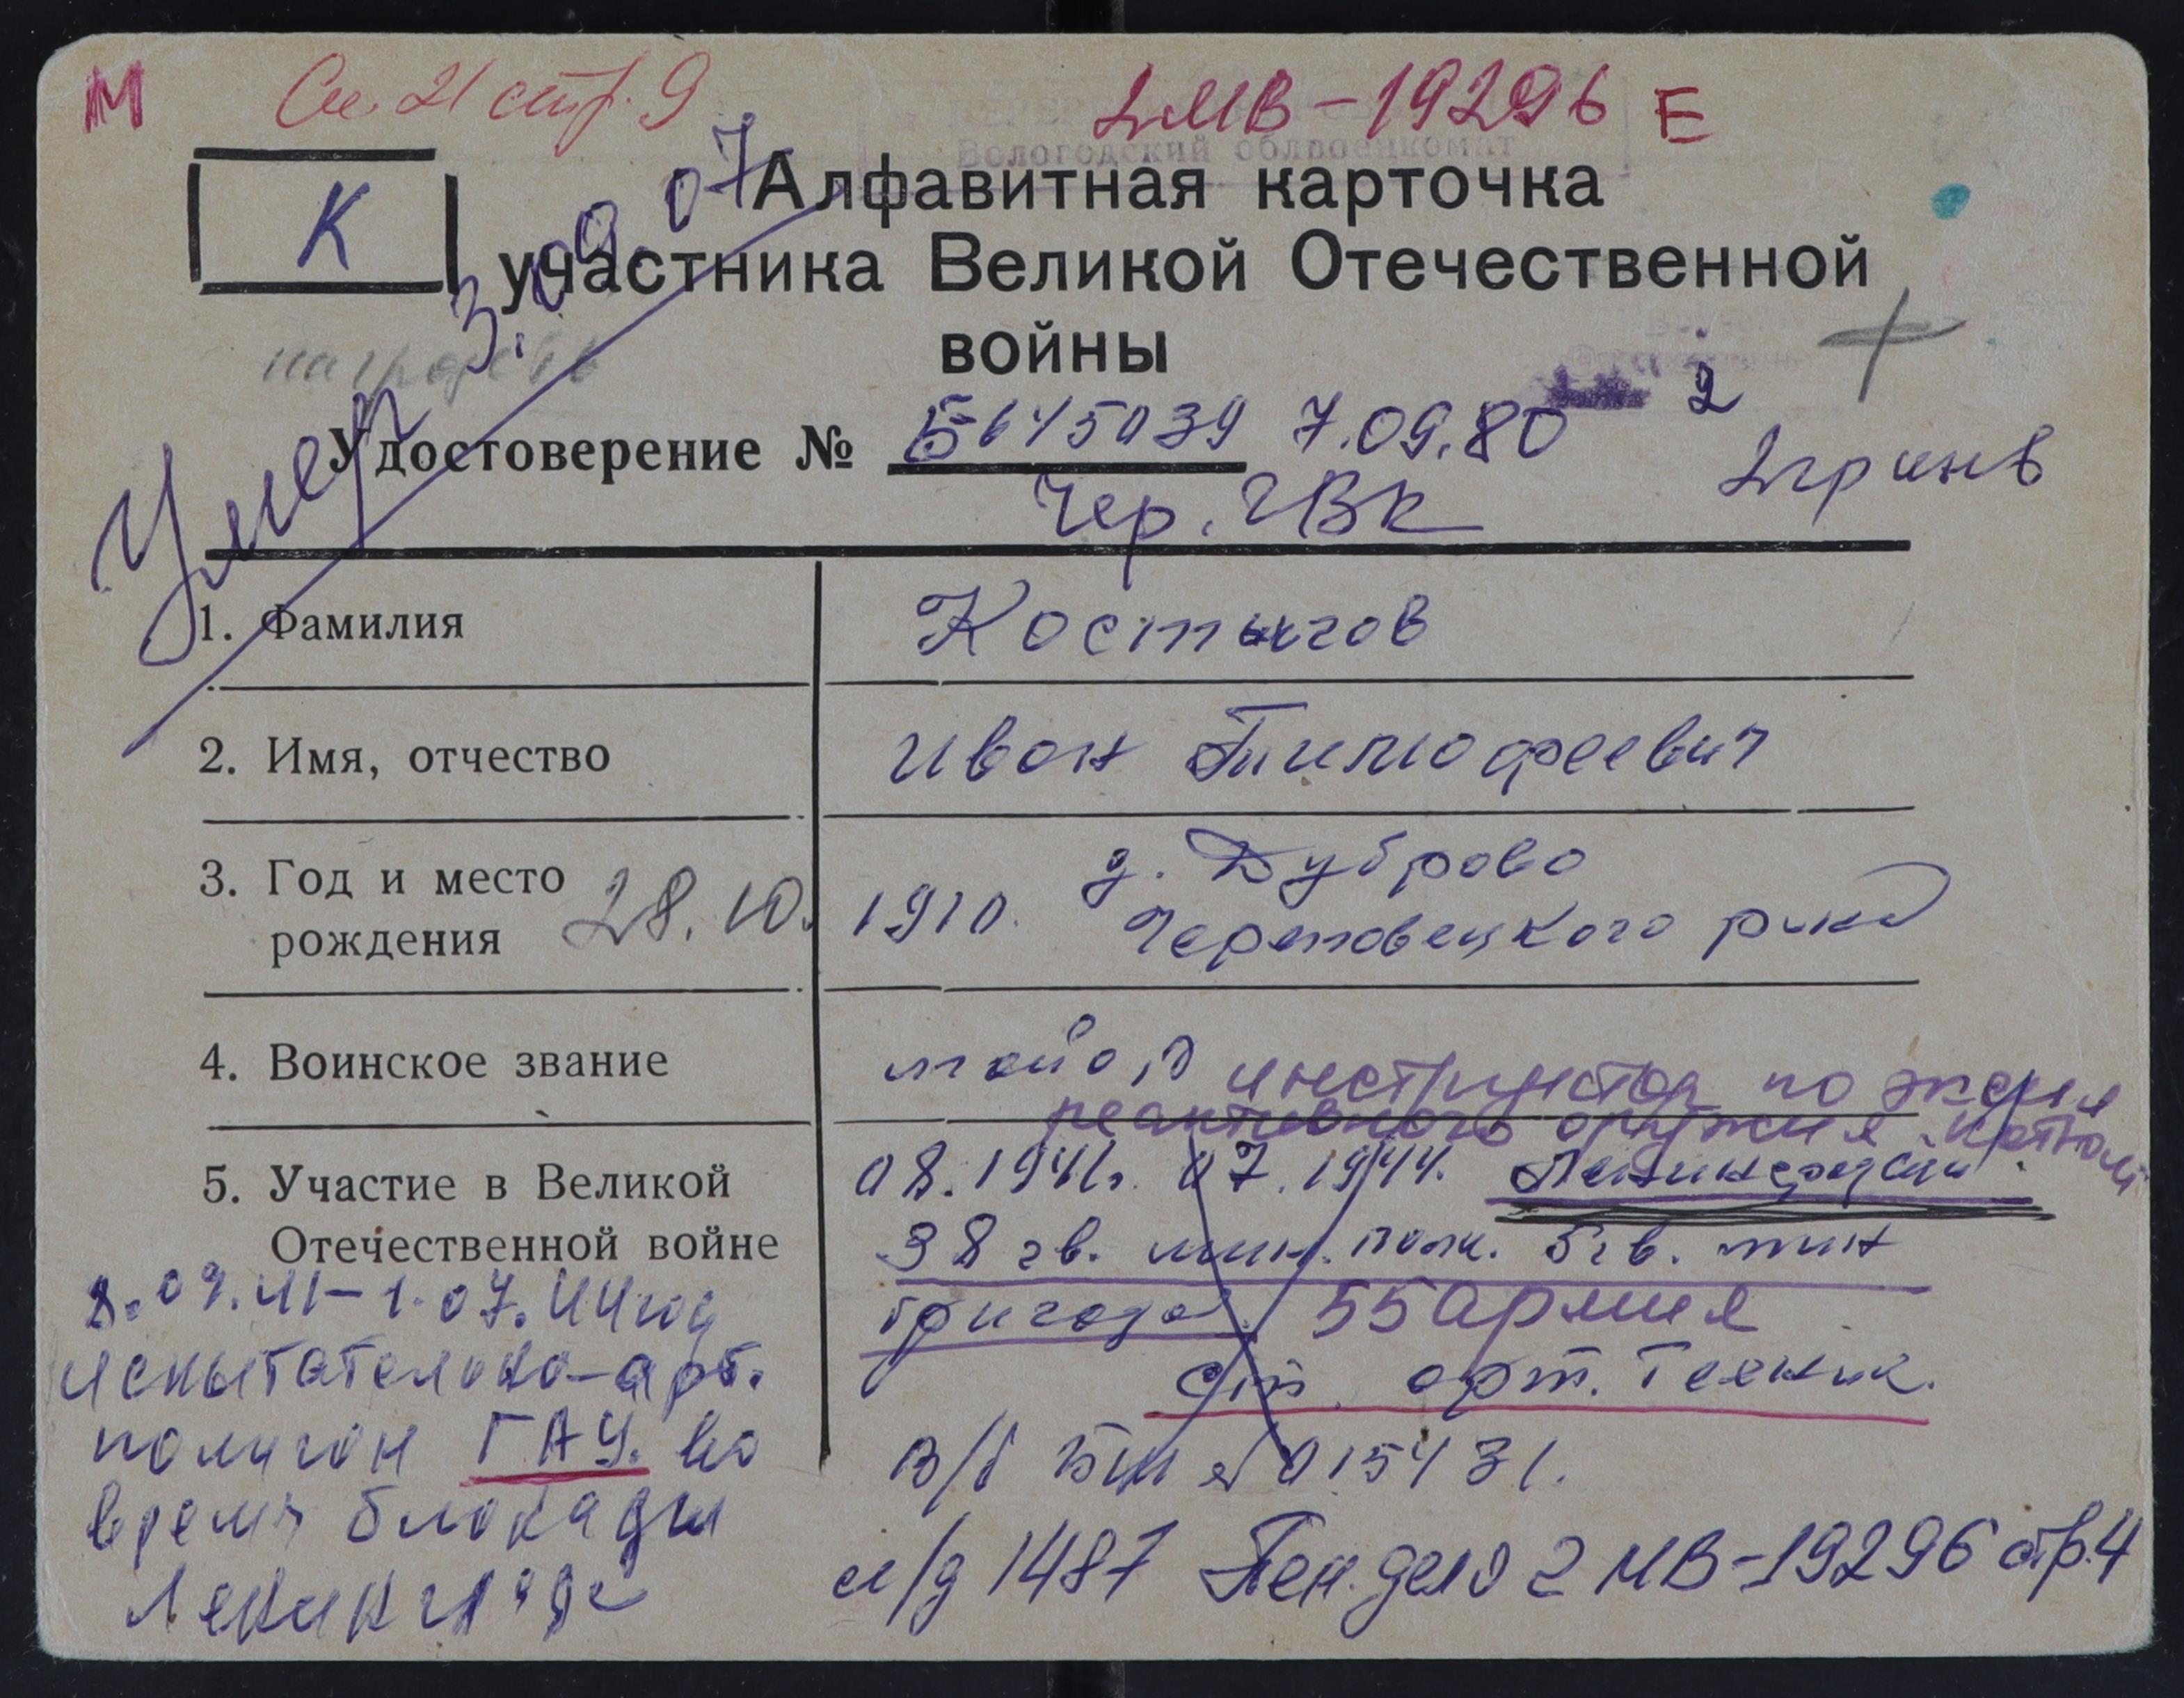 М См. 21 стр. 9 2МВ-19296 Е
Вологодский облвоенкомат
К
Алфавитная карточка
участника Великой Отечественной
войны
Умер 3.09.07
Удостоверение № Б 645039 7.09.80 2
Чер. ГВК 2 гр инв
1. Фамилия Костыгов
2. Имя, отчество Иван Тимофеевич
3. Год и место рождения 28.10. 1910. д. Дуброво
Череповецкого р-на
4. Воинское звание майор инструктор по экспл
реактивного оружия "Катюш
5. Участие в Великой Отечественной войне 08.1941г. 07.1944. Ленинградский
38 гв. мин. полк. 5 гв. мин
бригада 55 армия
ст. арт. техник.
в/б БМ № 015431.
л/д 1487 Пен. дело 2 МВ-19296 стр. 4
8.09.41-1.07.44 год
испытательно-арт.
полигон ГАУ. во
время блокады
Ленинграда